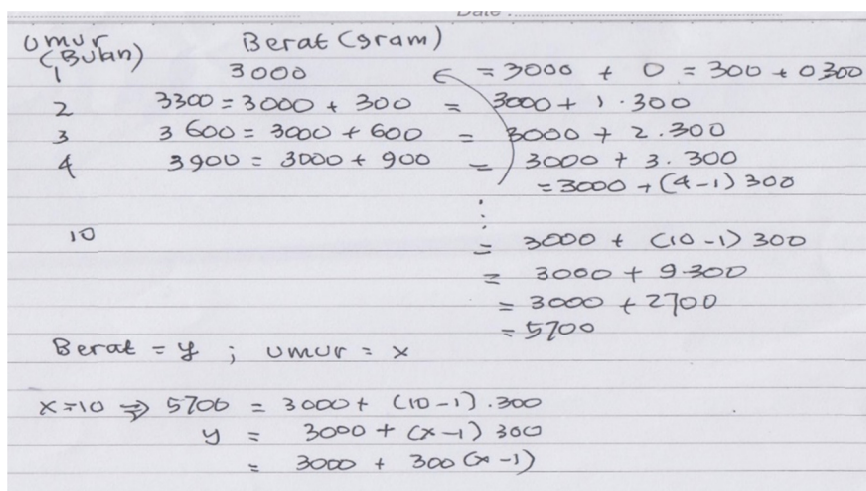 Date :
Umur (Bulan) Berat (gram)
1 3000 = 3000 + 0 = 300 + 0 300
2 3300 = 3000 + 300 = 3000 + 1 . 300
3 3600 = 3000 + 600 = 3000 + 2 . 300
4 3900 = 3000 + 900 = 3000 + 3 . 300
= 3000 + (4-1) 300
10 = 3000 + (10-1) 300
= 3000 + 9 300
= 3000 + 2700
= 5700
Berat = y ; umur = x
x = 10 ⇒ 5700 = 3000 + (10-1) . 300
y = 3000 + (x-1) 300
= 3000 + 300 (x-1)